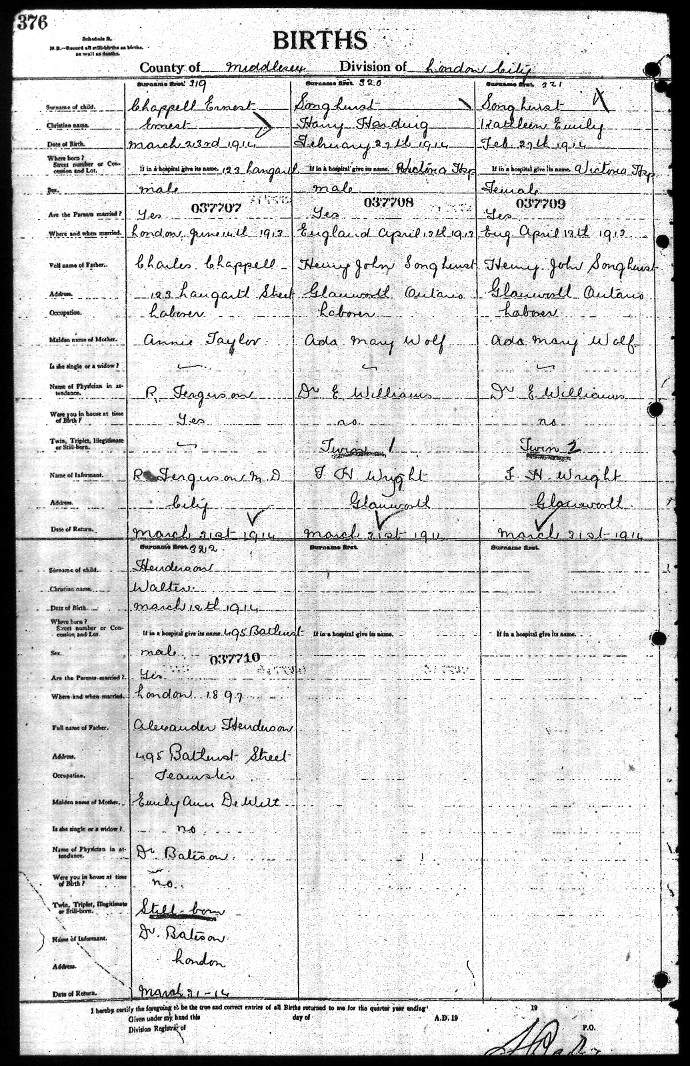 376
Schedule B.
N.B.—Record all still-births as births, as well as deaths.
BIRTHS
County of Middlesex Division of London City
Surname first. 319 Surname first. 320 Surname first. 321
Surname of child. Chappell Ernest Songhurst Songhurst
Christian name. Ernest Harry Harding Kathleen Emily
Date of Birth. March 23rd 1914 February 27th 1914 Feb. 27th 1914
Where born? Street number or Concession and Lot. If in a hospital give its name. 123 Langarth If in a hospital give its name. Victoria Hsp If in a hospital give its name. Victoria Hsp
Sex. male male Female
037707 037708 037709
Are the Parents married? Yes Yes Yes
Where and when married. London June 14th 1913 England April 12th 1913 Eng April 12th 1913
Full name of Father. Charles Chappell Henry John Songhurst Henry John Songhurst
Address. 123 Langarth Street Glanworth Ontario Glanworth Ontario
Occupation. Laborer Laborer Laborer
Maiden name of Mother. Annie Taylor Ada Mary Wolf Ada Mary Wolf
Is she single or a widow?
Name of Physician in attendance. R. Ferguson Dr E Williams Dr E Williams
Were you in house at time of Birth? Yes no no
Twin, Triplet, Illegitimate or Still-born. Twin 1 Twin 2
Name of Informant. R Ferguson M.D F H Wright F H Wright
Address. City Glanworth Glanworth
Date of Return. March 31st 1914 March 31st 1914 March 31st 1914
Surname first. 322 Surname first. Surname first.
Surname of child. Henderson
Christian name. Walter
Date of Birth. March 12th 1914
Where born? Street number or Concession and Lot. If in a hospital give its name. 495 Bathurst If in a hospital give its name. If in a hospital give its name.
Sex. male
037710
Are the Parents married? Yes
Where and when married. London 1897
Full name of Father. Alexander Henderson
Address. 495 Bathurst Street
Occupation. Teamster
Maiden name of Mother. Emily Ann DeWitt
Is she single or a widow? no
Name of Physician in attendance. Dr. Bateson
Were you in house at time of Birth? no
Twin, Triplet, Illegitimate or Still-born. Still-born
Name of Informant. Dr. Bateson
Address. London
Date of Return. March 31-14
I hereby certify the foregoing to be the true and correct entries of all Births returned to me for the quarter year ending 19
Given under my hand this day of A.D. 19
Division Registrar of P.O.